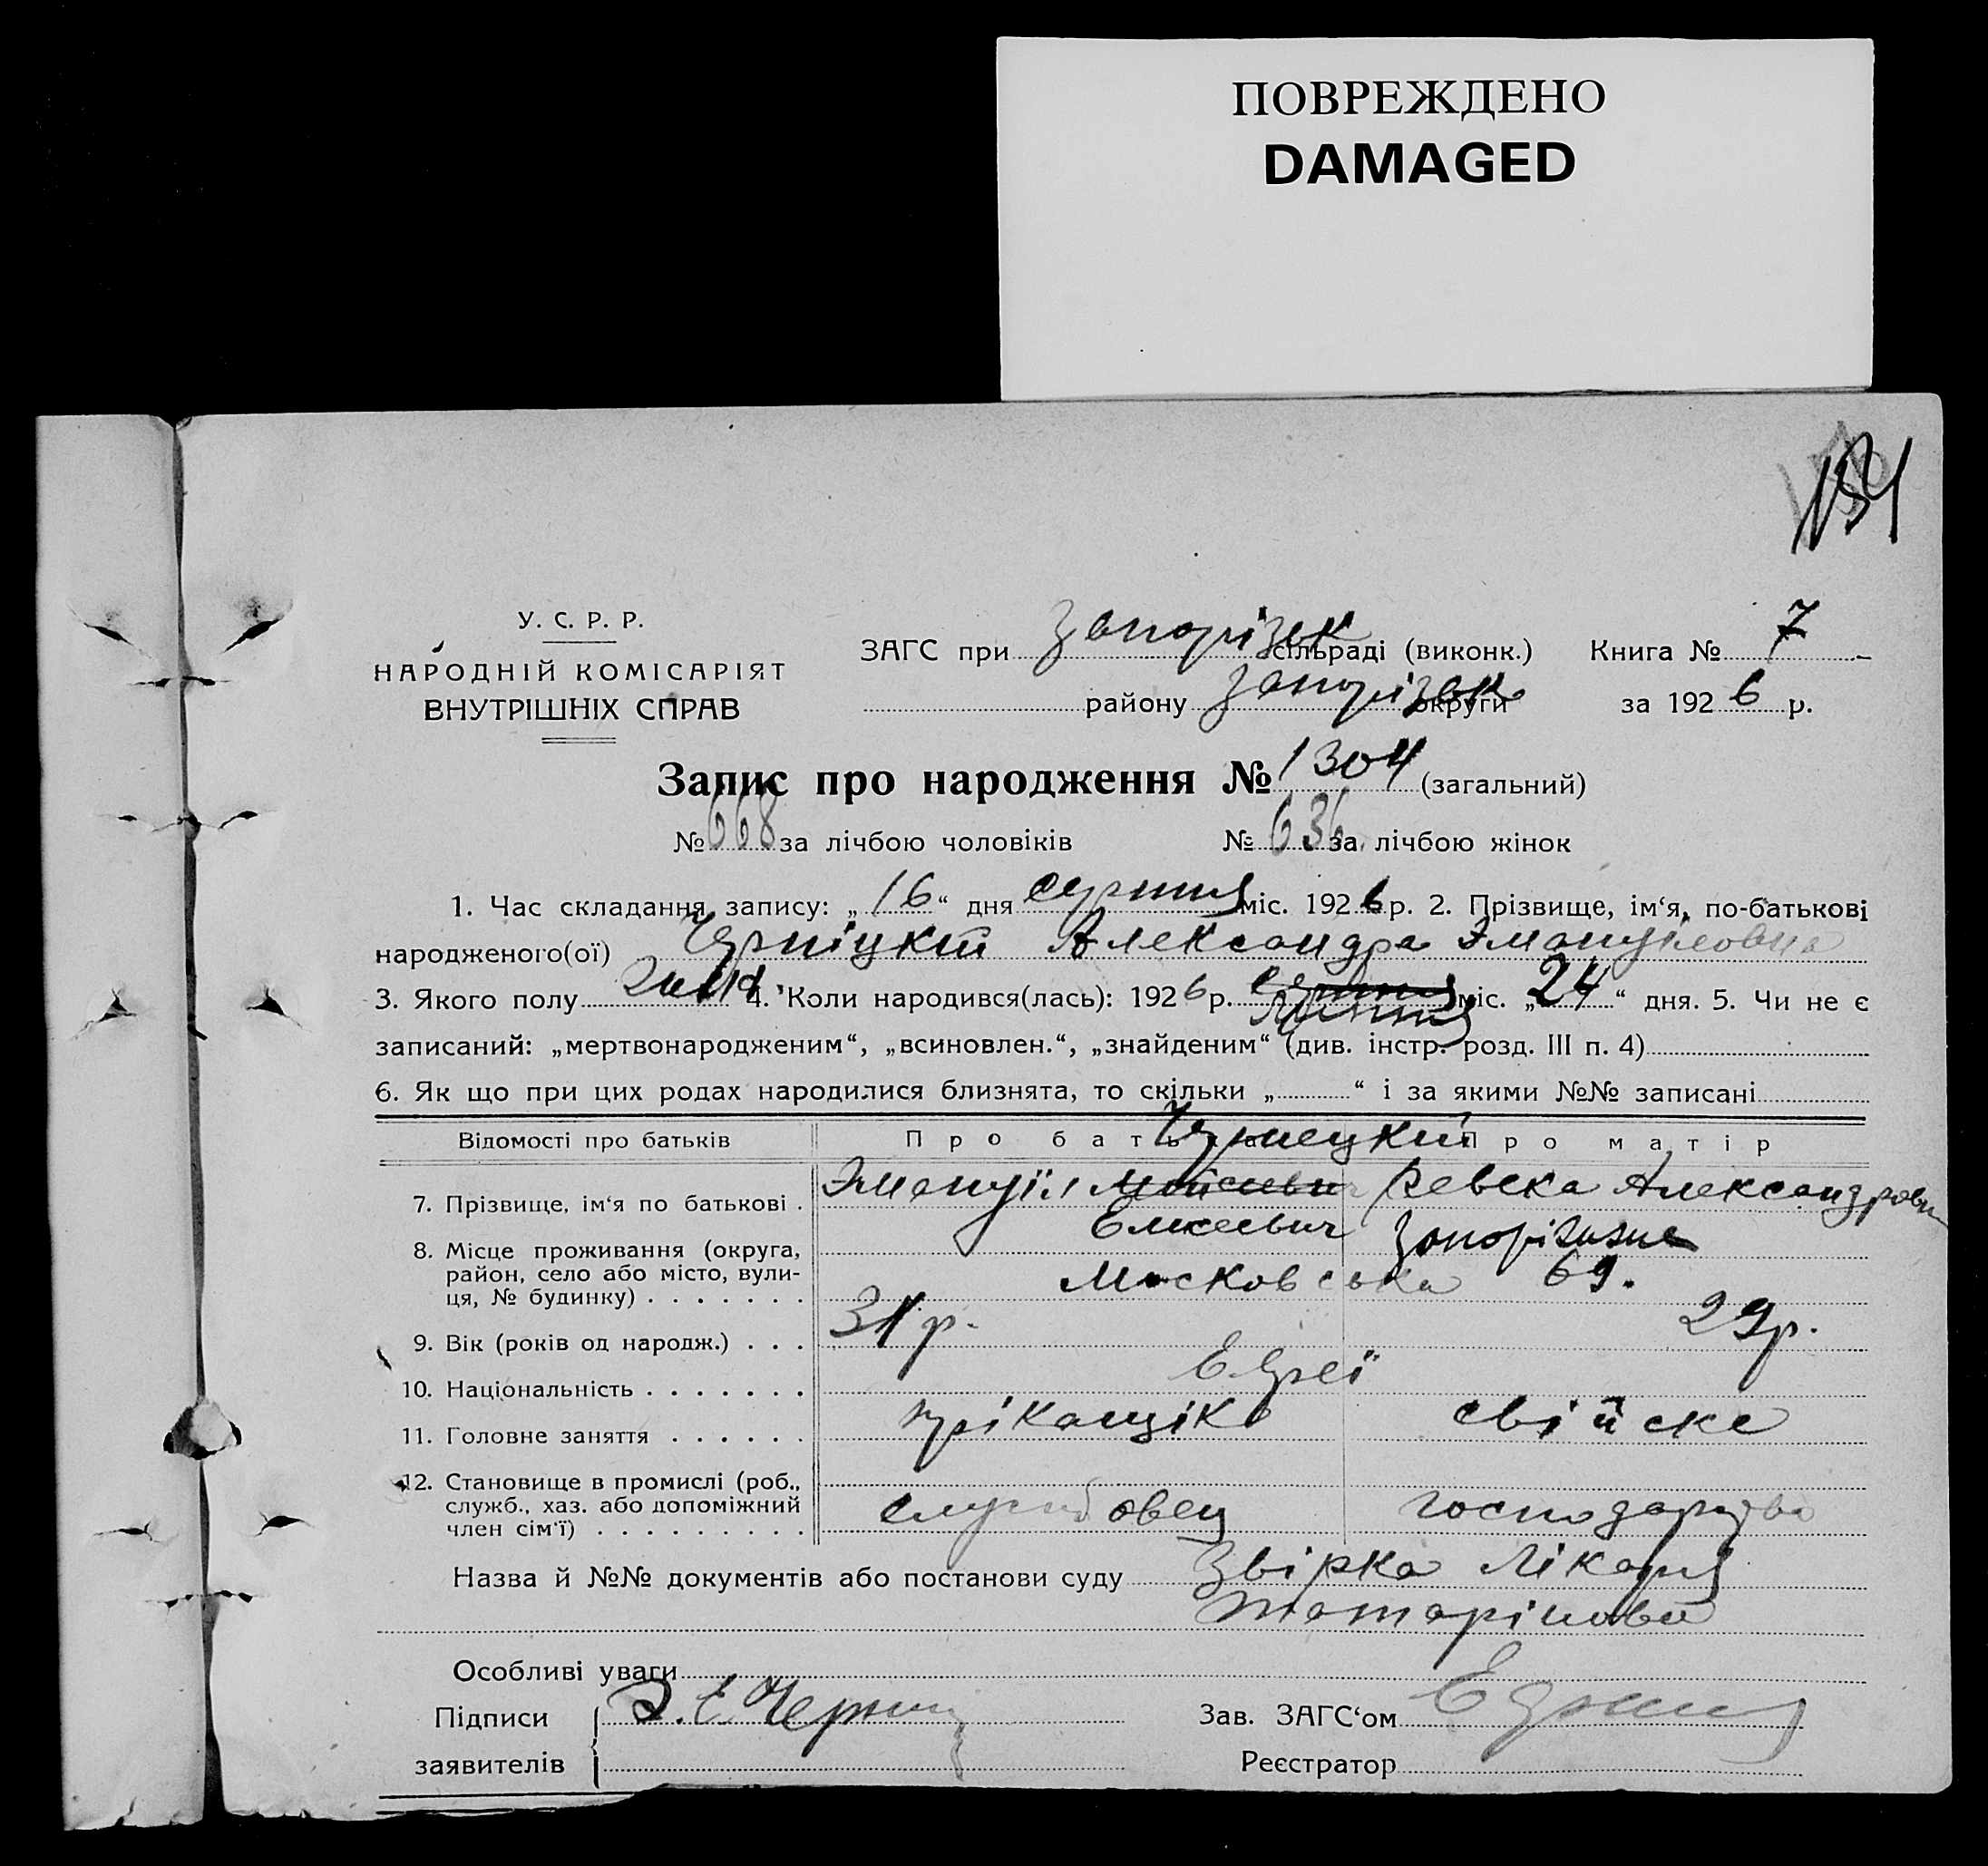 ПОВРЕЖДЕНО
DAMAGED
У. С. Р. Р.
НАРОДНІЙ КОМІСАРІЯТ
ВНУТРІШНІХ СПРАВ
ЗАГС при Запорізьк сільраді (виконк.) Книга № 7
району Запорізьк округи за 1926 р.
Запис про народження № 1304 (загальний)
№ 668 за лічбою чоловіків № 636 за лічбою жінок
1. Час складання запису: „16“ дня серпня міс. 1926 р. 2. Прізвище, ім‘я, по-батькові
народженого(ої) Александра Эмануіловна
3. Якого полу 4. Коли народився(лась): 1926 р. серпня міс. „24“ дня. 5. Чи не є
липня
записаний: „мертвонародженим“, „всиновлен.“, „знайденим“ (див. інстр. розд. III п. 4)
6. Як що при цих родах народилися близнята, то скільки „ “ і за якими №№ записані
Відомості про батьків Про батька Про матір
Чернецкий
7. Прізвище, ім‘я по батькові . Эмануїл Мойсеевич Ревека Александровн
Елисевич
8. Місце проживання (округа, район, село або місто, вули-
ця, № будинку) . . . . . . . Московська 69.
9. Вік (років од народж.) . . . 31 р. 29 р.
10. Національність . . . . . . . Евреї
11. Головне заняття . . . . . . прікащік свійске
12. Становище в промислі (роб., служб., хаз. або допоміжний
член сім‘ї) . . . . . . . . . службовец господарство
Назва й №№ документів або постанови суду Звірка Лікаря
Татарінова
Особливі уваги
Підписи Э. Е. Зав. ЗАГС‘ом
заявителів Реєстратор